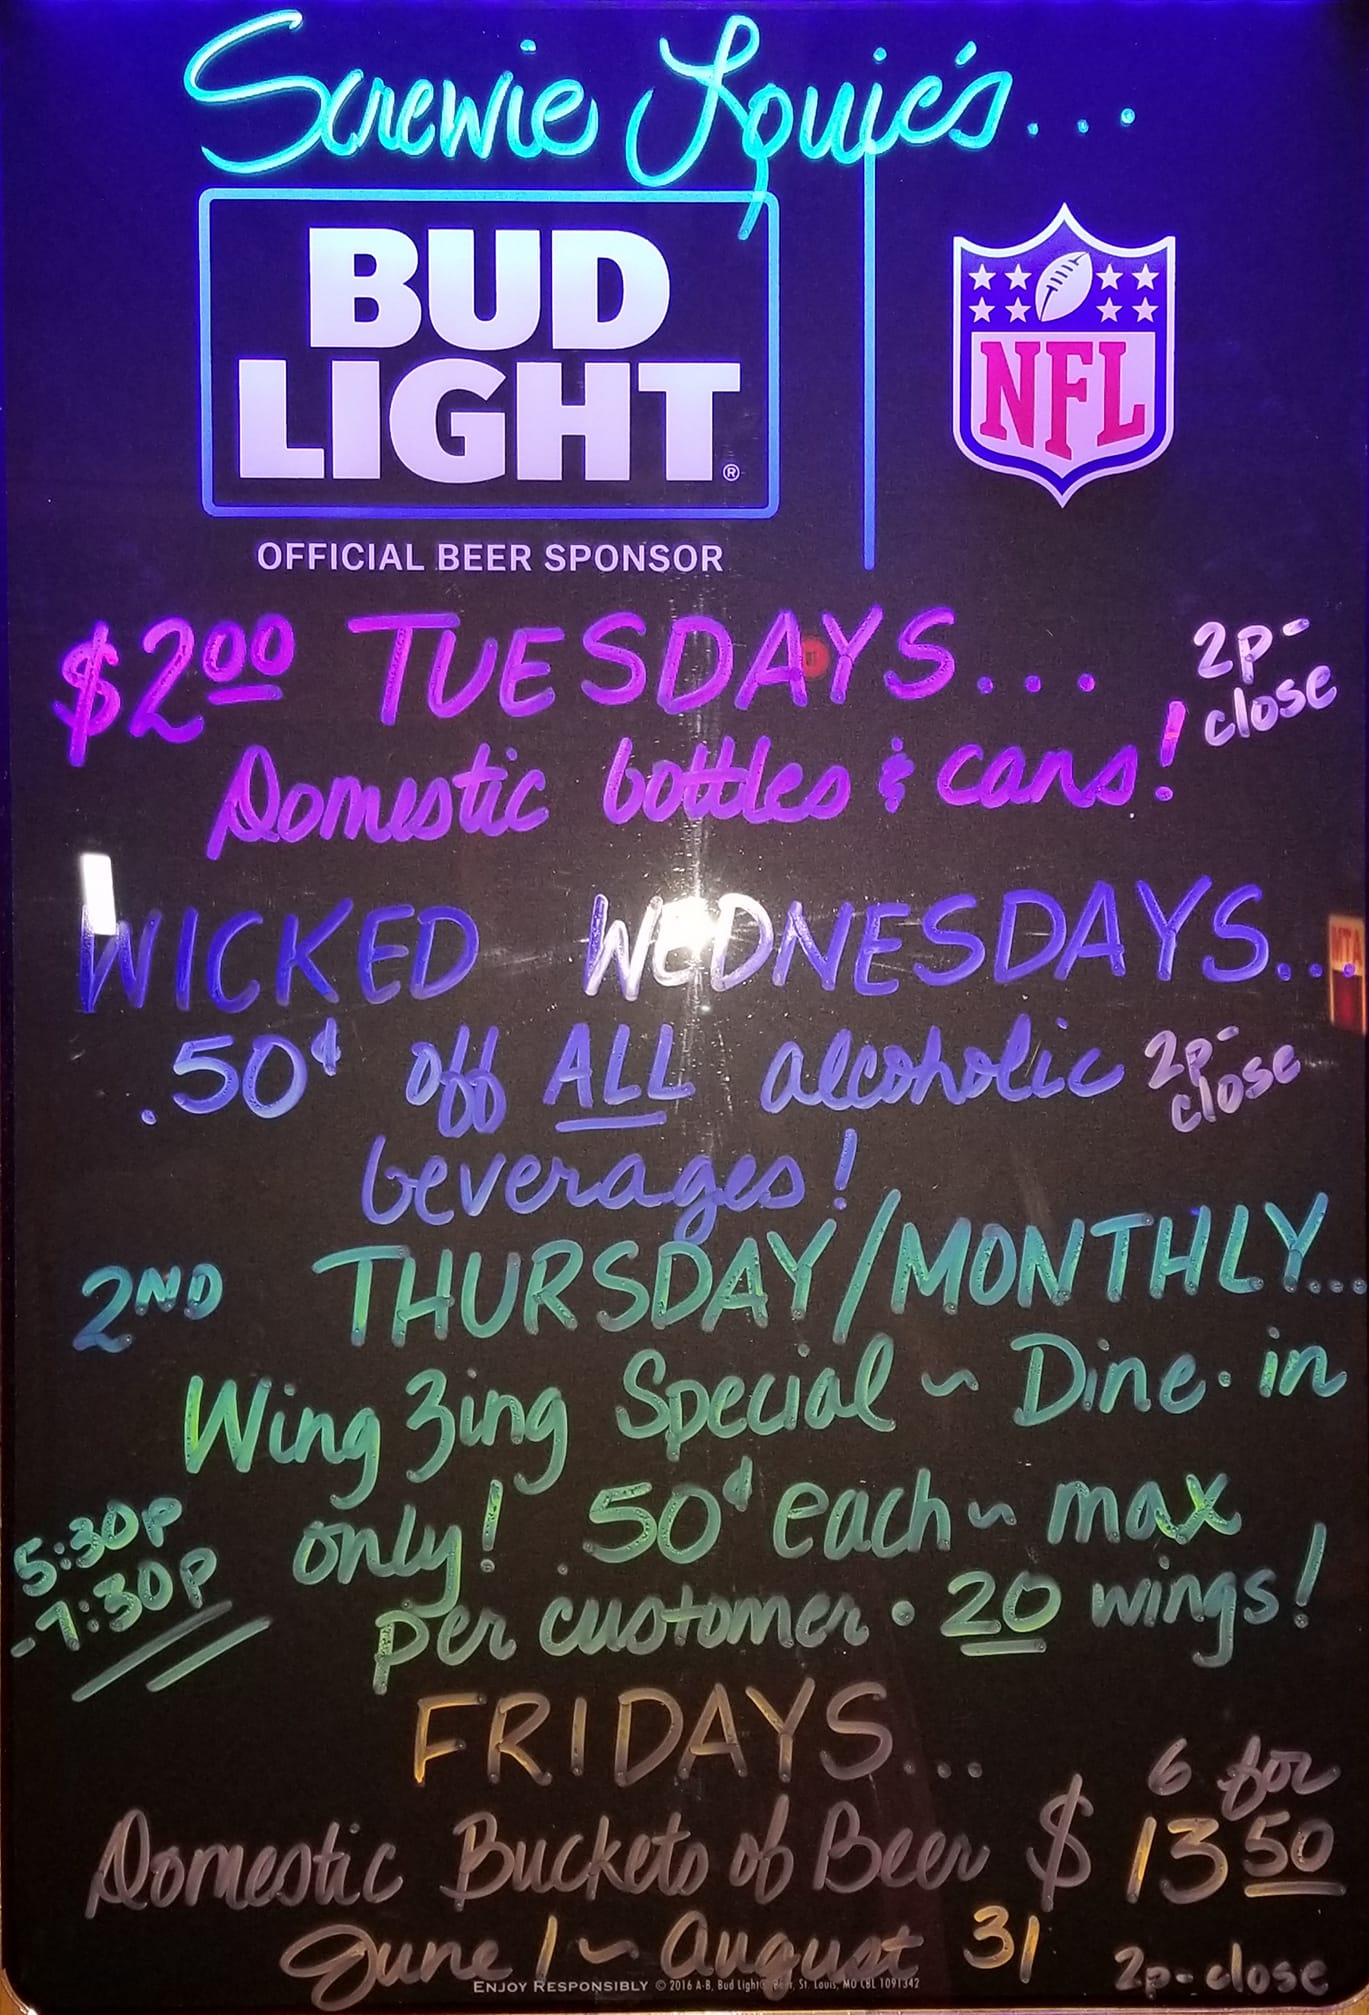 Screwie Louie's...
BUD
LIGHT®
NFL
OFFICIAL BEER SPONSOR
$2.00 TUESDAYS... 2p-
close
Domestic bottles & cans!
WICKED WEDNESDAYS...
.50¢ off ALL alcoholic 2p-
close
beverages!
2ND THURSDAY/MONTHLY...
Wing Zing Special ~ Dine-in
5:30P only! .50¢ each ~ max
-7:30P per customer • 20 wings!
FRIDAYS...
6 for
Domestic Buckets of Beer $13.50
June 1 ~ August 31
2p-close
ENJOY RESPONSIBLY © 2016 A-B, Bud Light® Beer, St. Louis, MO CBL 1091342